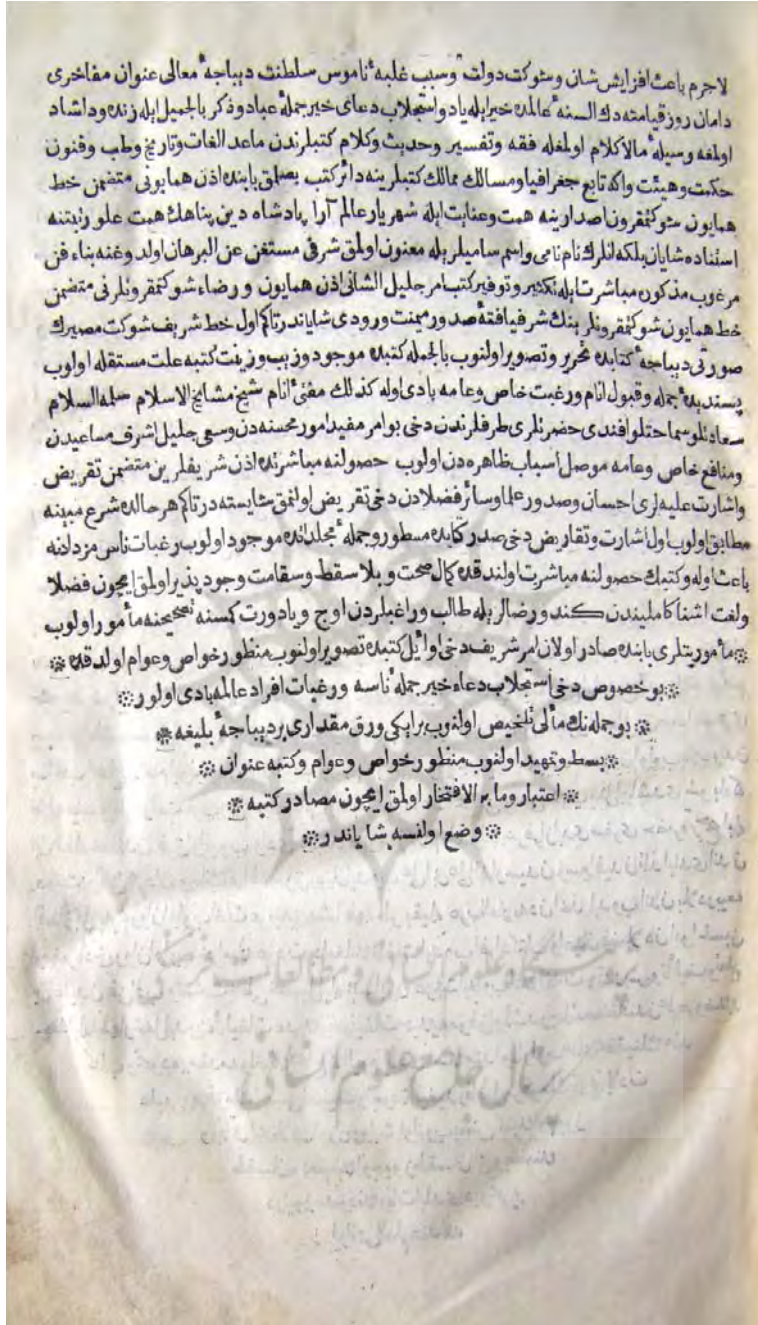 لاجرم باعث افزایش شان وشوکت دولت وسبب غلبهٔ ناموس سلطنت دیباجهٔ معالی عنوان مفاخری
دامان روز قیامته دك السنهٔ عالمده خیرایله یاد واستجلاب دعای خیر جملهٔ عباد وذکر بالجمیل ایله زنده وداشاد
اولمغه وسیلهٔ مالاکلام اولمغله فقه وتفسیر وحدیث وکلام کتبلرندن ماعدا لغات وتاریخ وطب وفنون
حکمت وهیئت واکه تابع جغرافیا ومسالك ممالك کتبلرینه دائر کتب بصملق بابنده اذن همایونی متضمن خط
همایون شوکتمقرون اصدارینه همت وعنایت ایله شهریار عالم آرا پادشاه دین پناهك همت علو رتبتنه
استناده شایان بلکه انلرك نام نامی واسم سامیلریله معنون اولمق شرفی مستغن عن البرهان اولدوغنه بناء فن
مرغوب مذکوره مباشرت ایله تکثیر وتوفیر کتب امر جلیل الشانی اذن همایون ورضاء شوکتمقرونلرنی متضمن
خط همایون شوکتمقرونلرینك شرفیافتهٔ صدور میمنت ورودی شایاندر تاکم اول خط شریف شوکت مصیرك
صورتی دیباجهٔ کتابده تحریر وتصویر اولنوب بالجمله کتبده موجود وزیب وزینت کتبه علت مستقله اولوب
پسندیدهٔ جمله وقبول انام ورغبت خاص وعامه بادی اوله کذلك مفتیٔ انام شیخ مشایخ الاسلام سلمه السلام
سعادتلو سماحتلو افندی حضرتلری طرفلرندن دخی بو امر مفید امور محسنه دن وسعی جلیل اشرف مساعیدن
ومنافع خاص وعامه موصل اسباب ظاهره دن اولوب حصولنه مباشرتده اذن شریفلرین متضمن تقریض
واشارت علیه لری احسان وصدور علما وسائر فضلادن دخی تقریض اولنمق شایسته در تاکم هر حالده شرع مبینه
مطابق اولوب اول اشارت وتقاریض دخی صدر کتابده مسطور وجملهٔ مجلداتده موجود اولوب رغبات ناس مزدادنه
باعث اوله وکتبك حصولنه مباشرت اولندقده کمال صحت وبلا سقط وسقامت وجود پذیر اولمق ایچون فضلا
ولغت اشنا کاملیندن کندو رضالریله طالب وراغبلردن اوچ ویا دورت کمسنه تصحیحنه مأمور اولوب
٭ مأموریتلری بابنده صادر اولان امر شریف دخی اوائل کتبده تصویر اولنوب منظور خواص وعوام اولدقده ٭
٭ بو خصوص دخی استجلاب دعاء خیر جملهٔ ناسه ورغبات افراد عالمه بادی اولور ٭
٭ بو جمله نك مآلی تلخیص اولنوب بر ایکی ورق مقداری بر دیباجهٔ بلیغه ٭
٭ بسط وتمهید اولنوب منظور خواص وعوام وکتبه عنوان ٭
٭ اعتبار وما به الافتخار اولمق ایچون مصادر کتبه ٭
٭ وضع اولنسه شایاندر ٭
پژوهشگاه علوم انسانی و مطالعات فرهنگی
پرتال جامع علوم انسانی